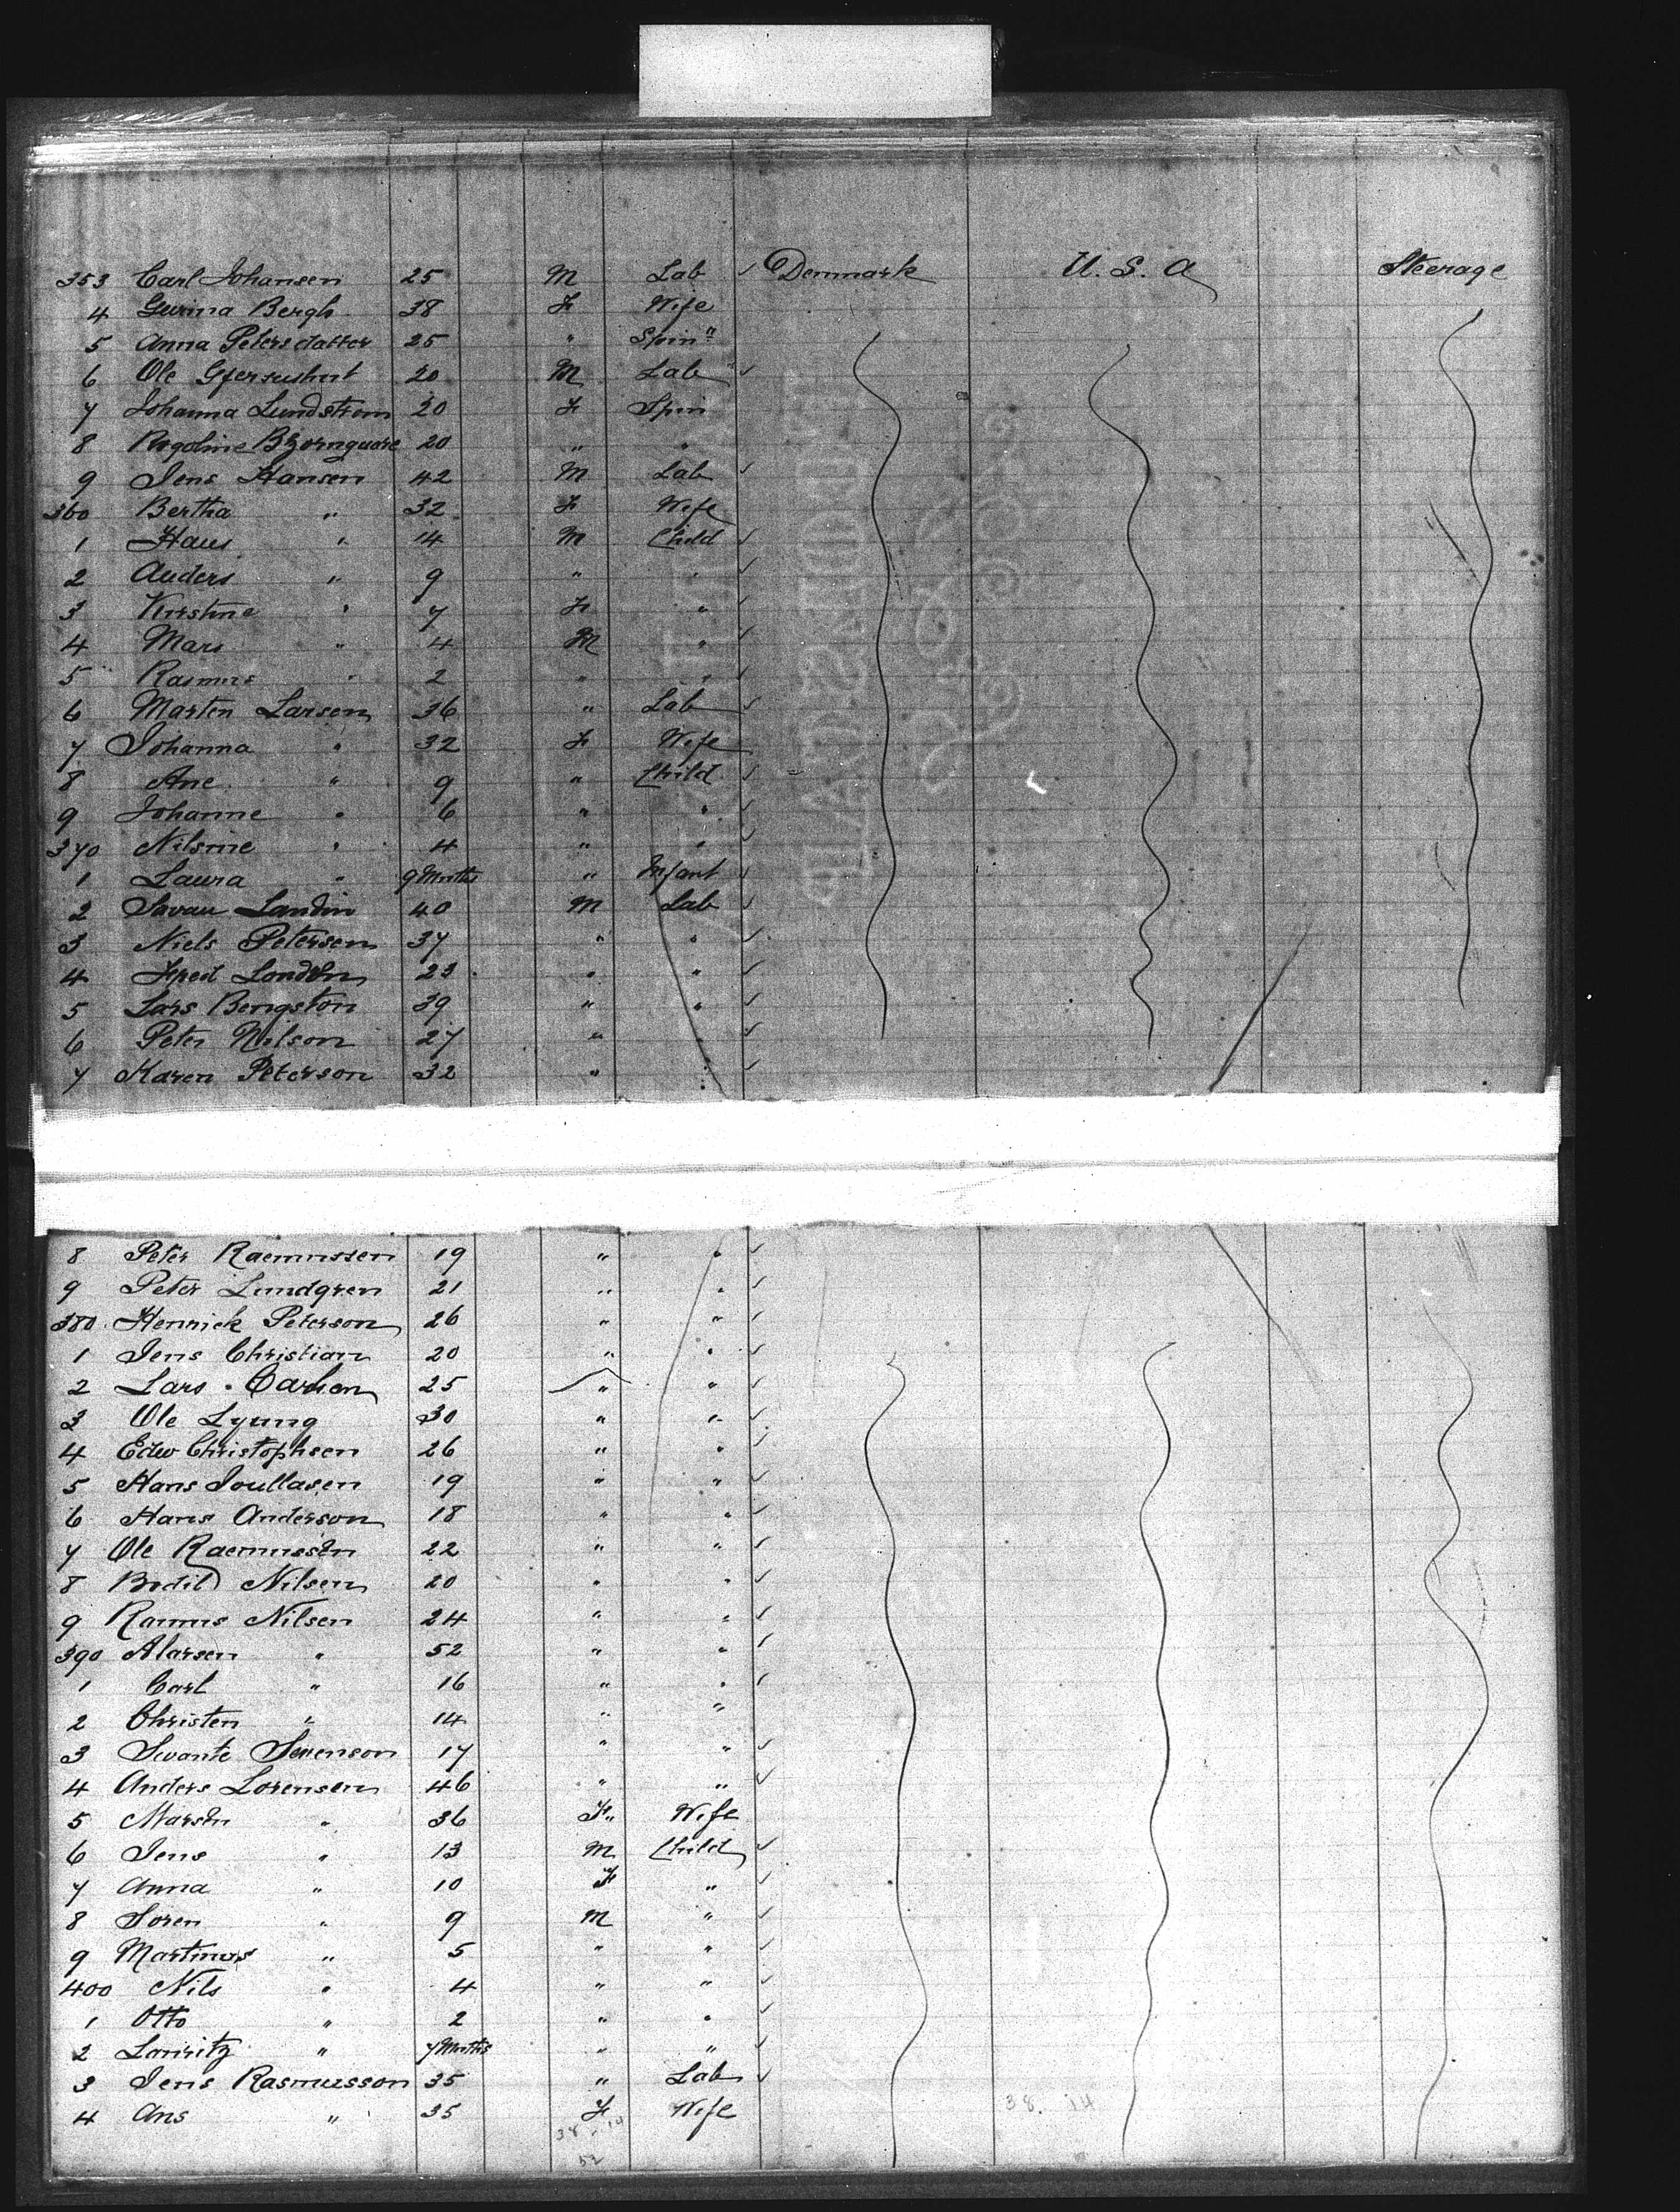 353 Carl Johansen 25 M Lab ✓ Denmark U. S. A Steerage
4 Gurina Bergh 38 F Wife
5 Anna Petersdatter 25 " Spin"
6 Ole 20 M Lab ✓
7 Johanna Lundstrom 20 F Spin
8 20 " "
9 Jens Hansen 42 M Lab ✓
360 Bertha " 32 F Wife
1 Hans " 14 M Child ✓
2 Anders " 9 " " ✓
3 Kirstine " 7 F " ✓
4 Mars " 4 M " ✓
5 Rasmus " 2 " " ✓
6 Marten Larsen 36 " Lab ✓
7 Johanna " 32 F Wife
8 Ane " 9 " Child ✓
9 Johanne " 6 " " ✓
370 Nilsine " 4 " " ✓
1 Laura " 9 Months " Infant ✓
2 Landin 40 M Lab ✓
3 Niels Petersen 37 " " ✓
4 23 " " ✓
5 Lars Bengston 39 " " ✓
6 Peter Nilson 27 " ✓
7 Karen Peterson 32 " ✓
8 Peter Raemussen 19 " " ✓
9 Peter Lundgren 21 " " ✓
380 Henrick Peterson 26 " " ✓
1 Jens Christian 20 " " ✓
2 Lars Carlsen 25 " " ✓
3 Ole Lyung 30 " " ✓
4 Edw Christophsen 26 " " ✓
5 Hans 19 " " ✓
6 Hans Anderson 18 " " ✓
7 Ole Raemussen 22 " " ✓
8 Bodil Nilsen 20 " " ✓
9 Ramus Nilsen 24 " " ✓
390 Alarsen " 52 " " ✓
1 Carl " 16 " " ✓
2 Christen " 14 " "
3 Svante Swenson 17 " " ✓
4 Anders Lorensen 46 " " ✓
5 " 36 F " Wife
6 Jens " 13 M Child ✓
7 Anna " 10 F " ✓
8 Soren " 9 M " ✓
9 Martinus " 5 " " ✓
400 Nils " 4 " " ✓
1 Otto " 2 " " ✓
2 Lauritz " 7 Months " " ✓
3 Jens Rasmusson 35 " Lab ✓
4 Ans " 35 F Wife
38. 14
38. 14
52